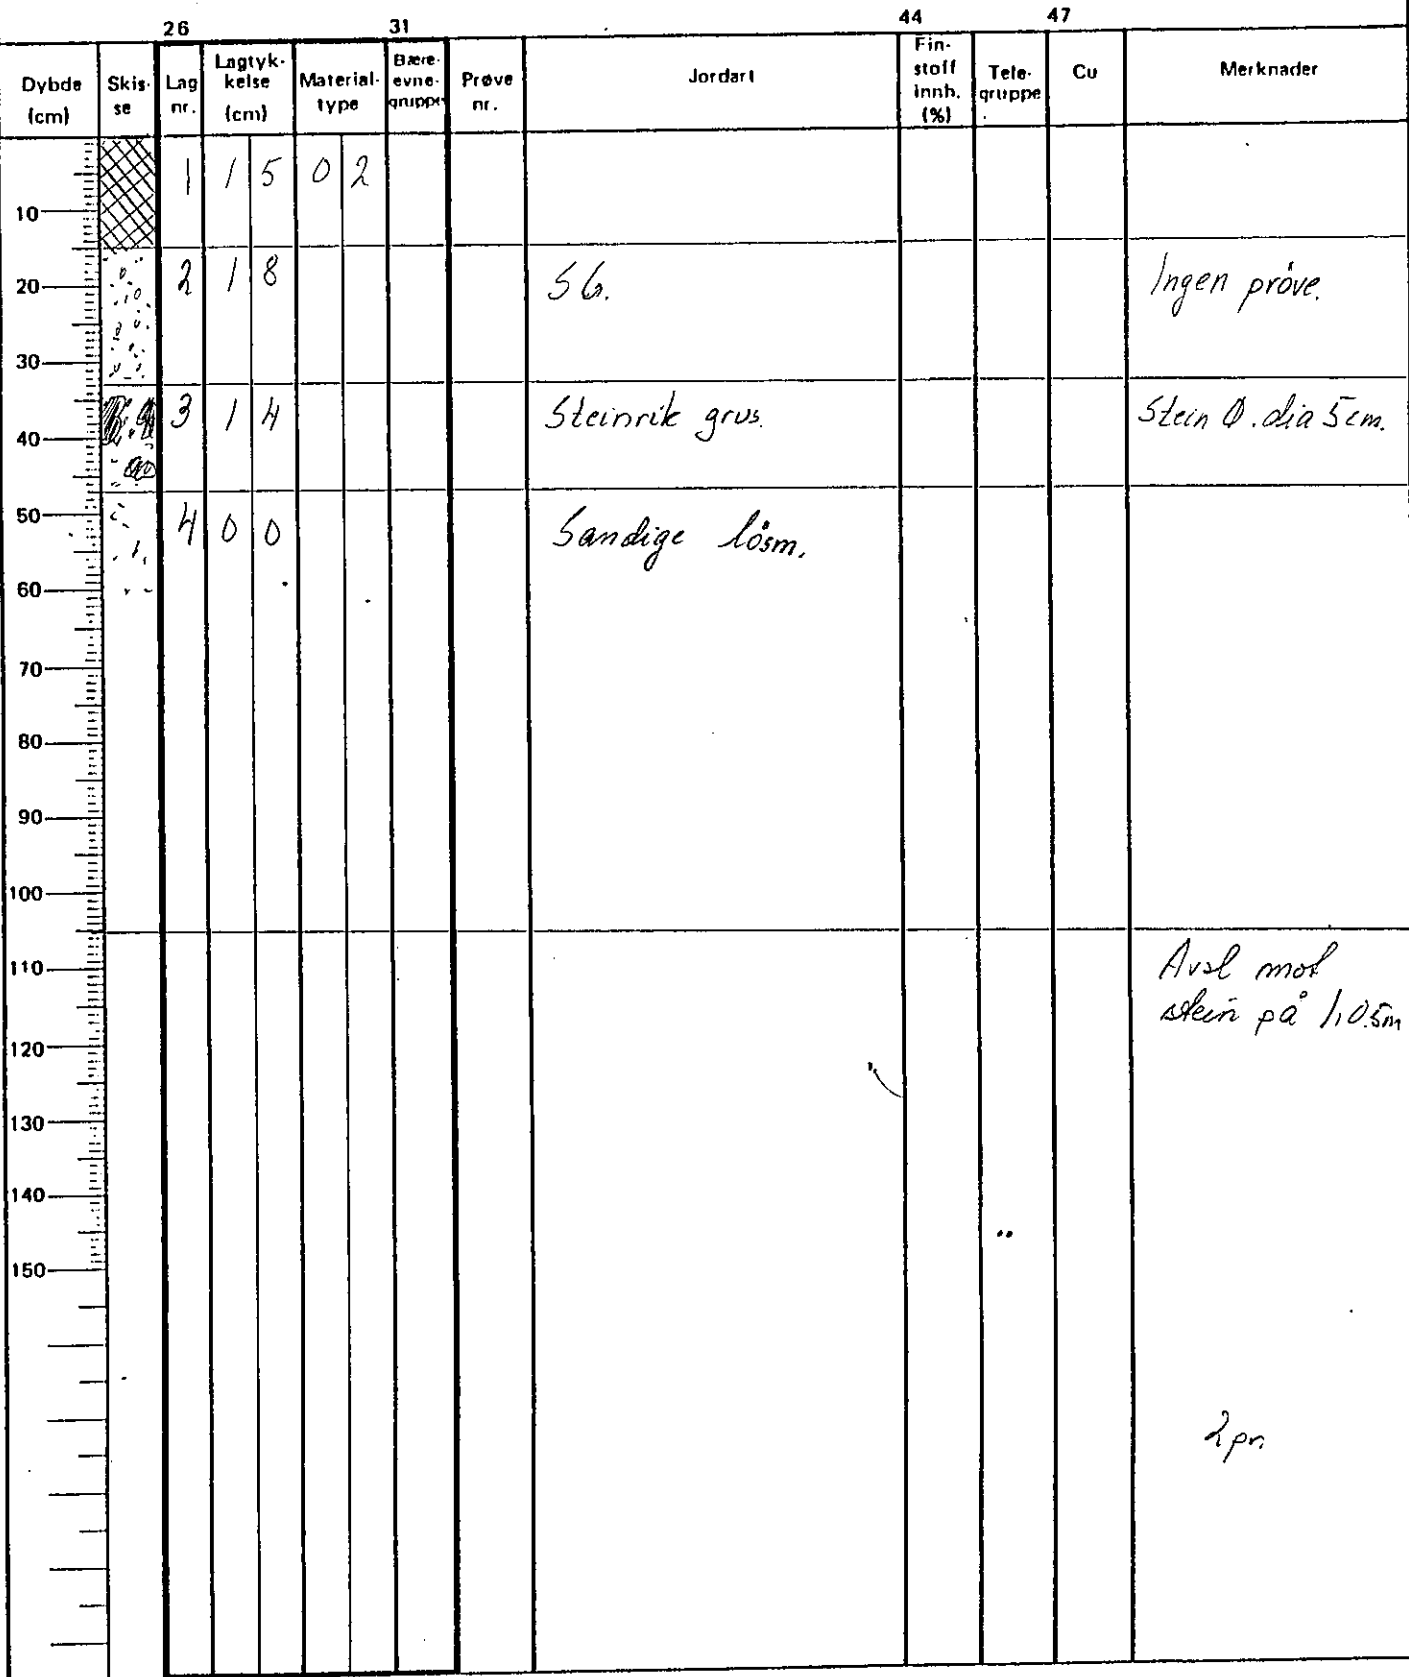 26 31 44 47
Dybde (cm) Skis-se Lag nr. Lagtyk-kelse (cm) Material-type Bære-evne-gruppe Prøve nr. Jordart Fin-stoff innh. (%) Tele-gruppe Cu Merknader
1 1 5 0 2
10
2 1 8 SG. Ingen pröve.
20
30
3 1 4 Steinrik grus. Stein Ø. dia 5cm.
40
50
4 0 0 Sandige lösm.
60
70
80
90
100
110
Avsl mot
stein på 1,05m
120
130
140
150
2pr.